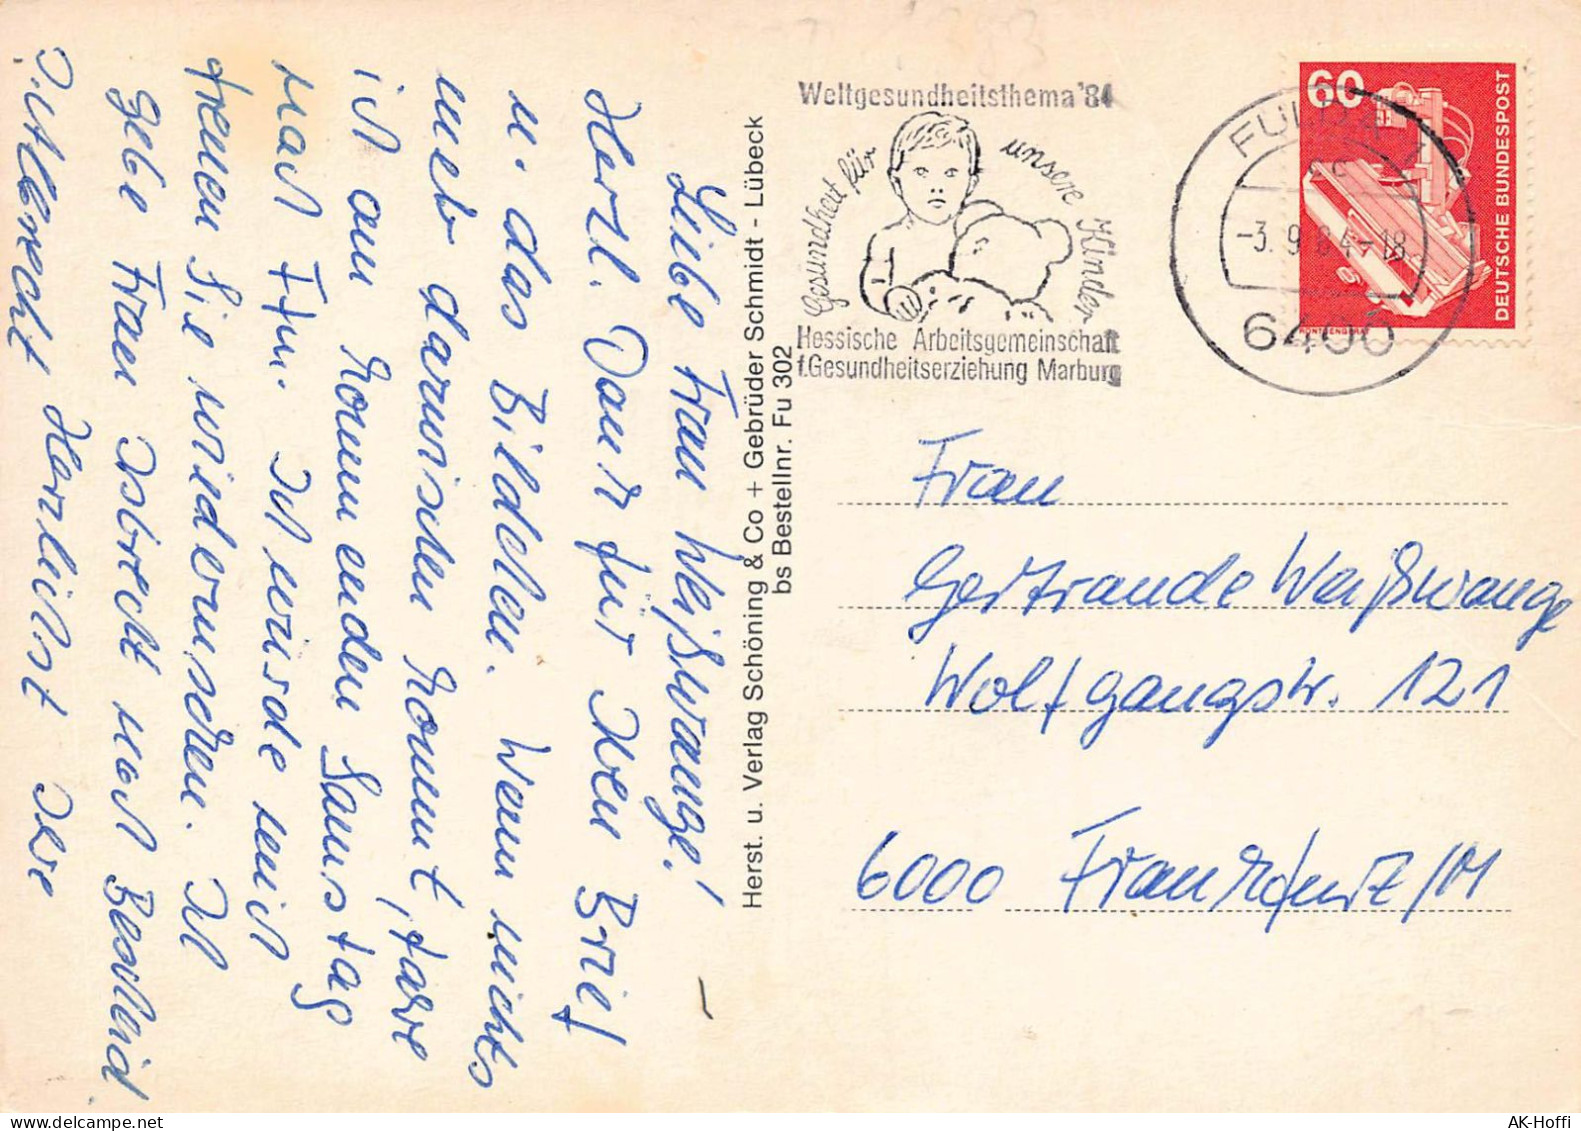 Liebe Frau Weißwange!
Herzl. Dank für Ihren Brief
u. das Bildchen. Wenn nichts
mehr dazwischen kommt, fahre
ich am kommenden Samstag
nach Ffm. Ich würde mich
freuen Sie wiederzusehen. Ich
gebe Frau Asbrecht nach Bescheid.
Herzlichst Ihre
Herst. u. Verlag Schöning & Co + Gebrüder Schmidt - Lübeck
bs Bestellnr. Fu 302
Weltgesundheitsthema '84
Gesundheit für unsere Kinder
Hessische Arbeitsgemeinschaft
f.Gesundheitserziehung Marburg
FULDA 1
-3.9.84-18
6400
60
DEUTSCHE BUNDESPOST
RÖNTGENGERÄT
Frau
Gertraude Weißwange
Wolfgangstr. 121
6000 Frankfurt/M
AK-Hoffi